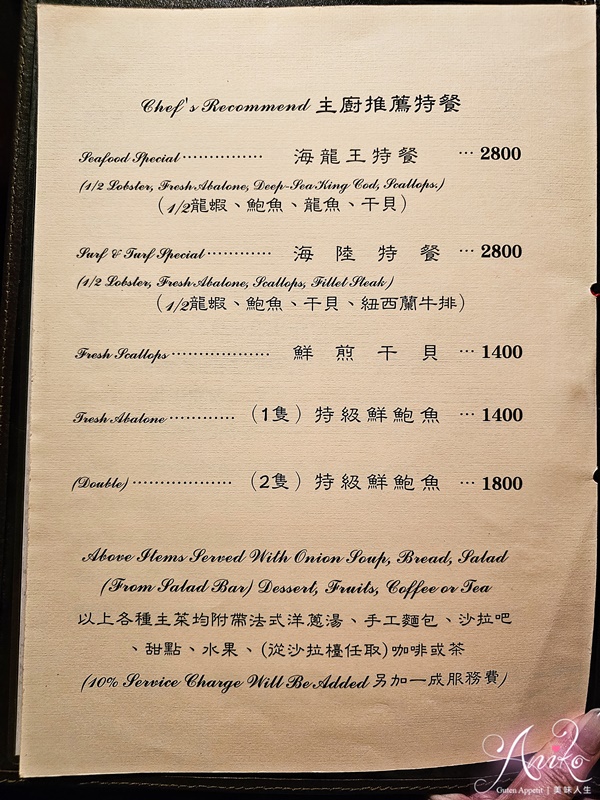 Chef's Recommend 主廚推薦特餐
Seafood Special ················ 海龍王特餐 ··· 2800
(1/2 Lobster, Fresh Abalone, Deep-Sea King Cod, Scallops.)
(1/2龍蝦、鮑魚、龍魚、干貝)
Surf & Turf Special ············ 海陸特餐 ··· 2800
(1/2 Lobster, Fresh Abalone, Scallops, Fillet Steak)
(1/2龍蝦、鮑魚、干貝、紐西蘭牛排)
Fresh Scallops ··················· 鮮煎干貝 ··· 1400
Fresh Abalone ············· (1隻) 特級鮮鮑魚 ··· 1400
(Double) ··················· (2隻) 特級鮮鮑魚 ··· 1800
Above Items Served With Onion Soup, Bread, Salad
(From Salad Bar) Dessert, Fruits, Coffee or Tea
以上各種主菜均附帶法式洋蔥湯、手工麵包、沙拉吧
、甜點、水果、(從沙拉檯任取)咖啡或茶
(10% Service Charge Will Be Added 另加一成服務費)
Aniko
Guten Appetit | 美味人生